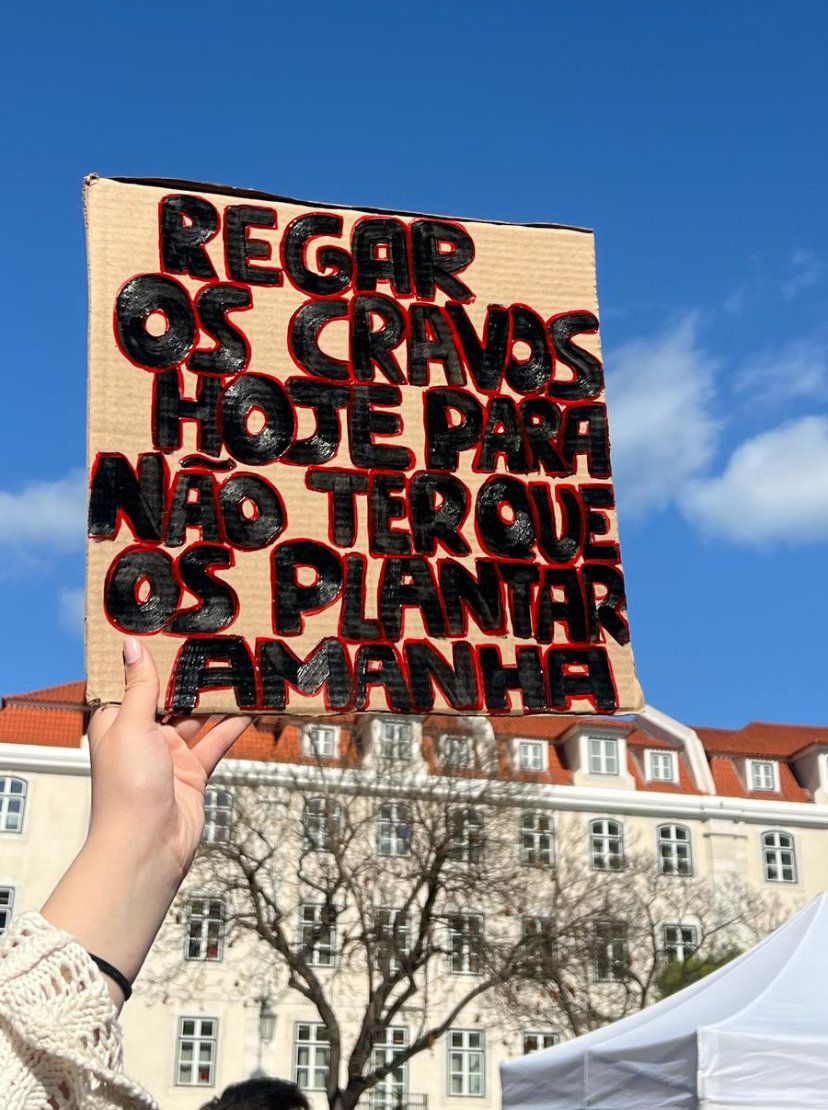 REGAR
OS CRAVOS
HOJE PARA
NÃO TER QUE
OS PLANTAR
AMANHA